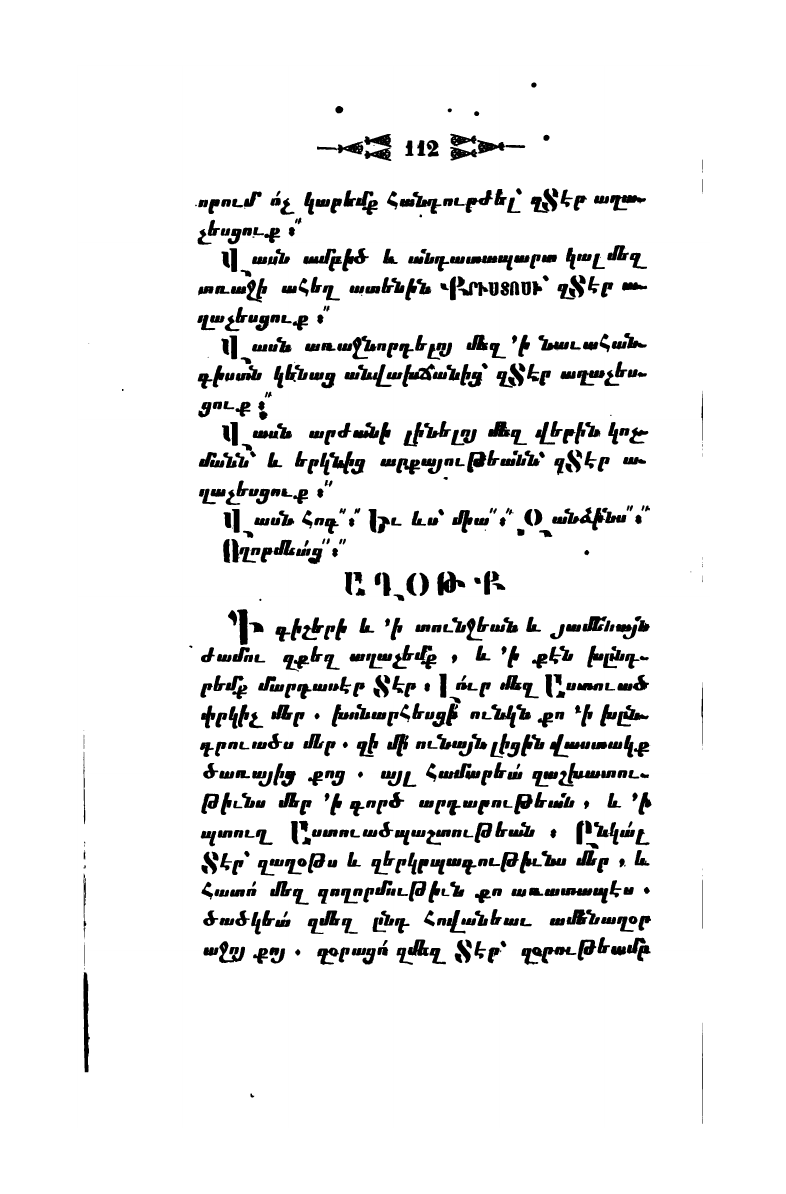 112
որում՝ ո՛չ կարեմք հանդուրժել՝ զՏէր աղա-
չեսցուք ։՟
Վասն ամբիծ և անդատապարտ կալ մեզ
առաջի ահեղ ատենին ՔՐԻՍՏՈՍԻ՝ զՏէր ա-
ղաչեսցուք ։՟
Վասն առաջնորդելոյ մեզ ՚ի նաւահան-
գիստն կենաց անվախճանից՝ զՏէր աղաչես-
ցուք ։՟
Վասն արժանի լինելոյ մեզ վերին կոչ-
մանն՝ և երկնից արքայութեանն՝ զՏէր ա-
ղաչեսցուք ։՟
Վասն հոգ՟։՟ Եւ ևս՝ միա՟։՟ Զանձինս՟։՟
Ողորմեաց՟։՟
ԱՂՕԹՔ
Ի գիշերի և ՚ի տունջեան և յամենայն
ժամու զքեզ աղաչեմք , և ՚ի քէն խընդ-
րեմք մարդասէր Տէր ։ Լո՛ւր մեզ Աստուած
փրկիչ մեր . խոնարհեսցի՛ ունկն քո ՚ի խըն-
դրուածս մեր . զի մի՛ ունայն լիցին վաստակք
ծառայից քոց . այլ համարեա՛ զաշխատու-
թիւնս մեր ՚ի գործ արդարութեան , և ՚ի
պտուղ Աստուածպաշտութեան ։ Ընկա՛լ
Տէր՝ զաղօթս և զերկրպագութիւնս մեր , և
հատո՛ մեզ զողորմութիւն քո առատապէս .
ծածկեա՛ զմեզ ընդ հովանեաւ ամենազօր
աջոյ քոյ . զօրացո՛ զմեզ Տէր՝ զօրութեամբ